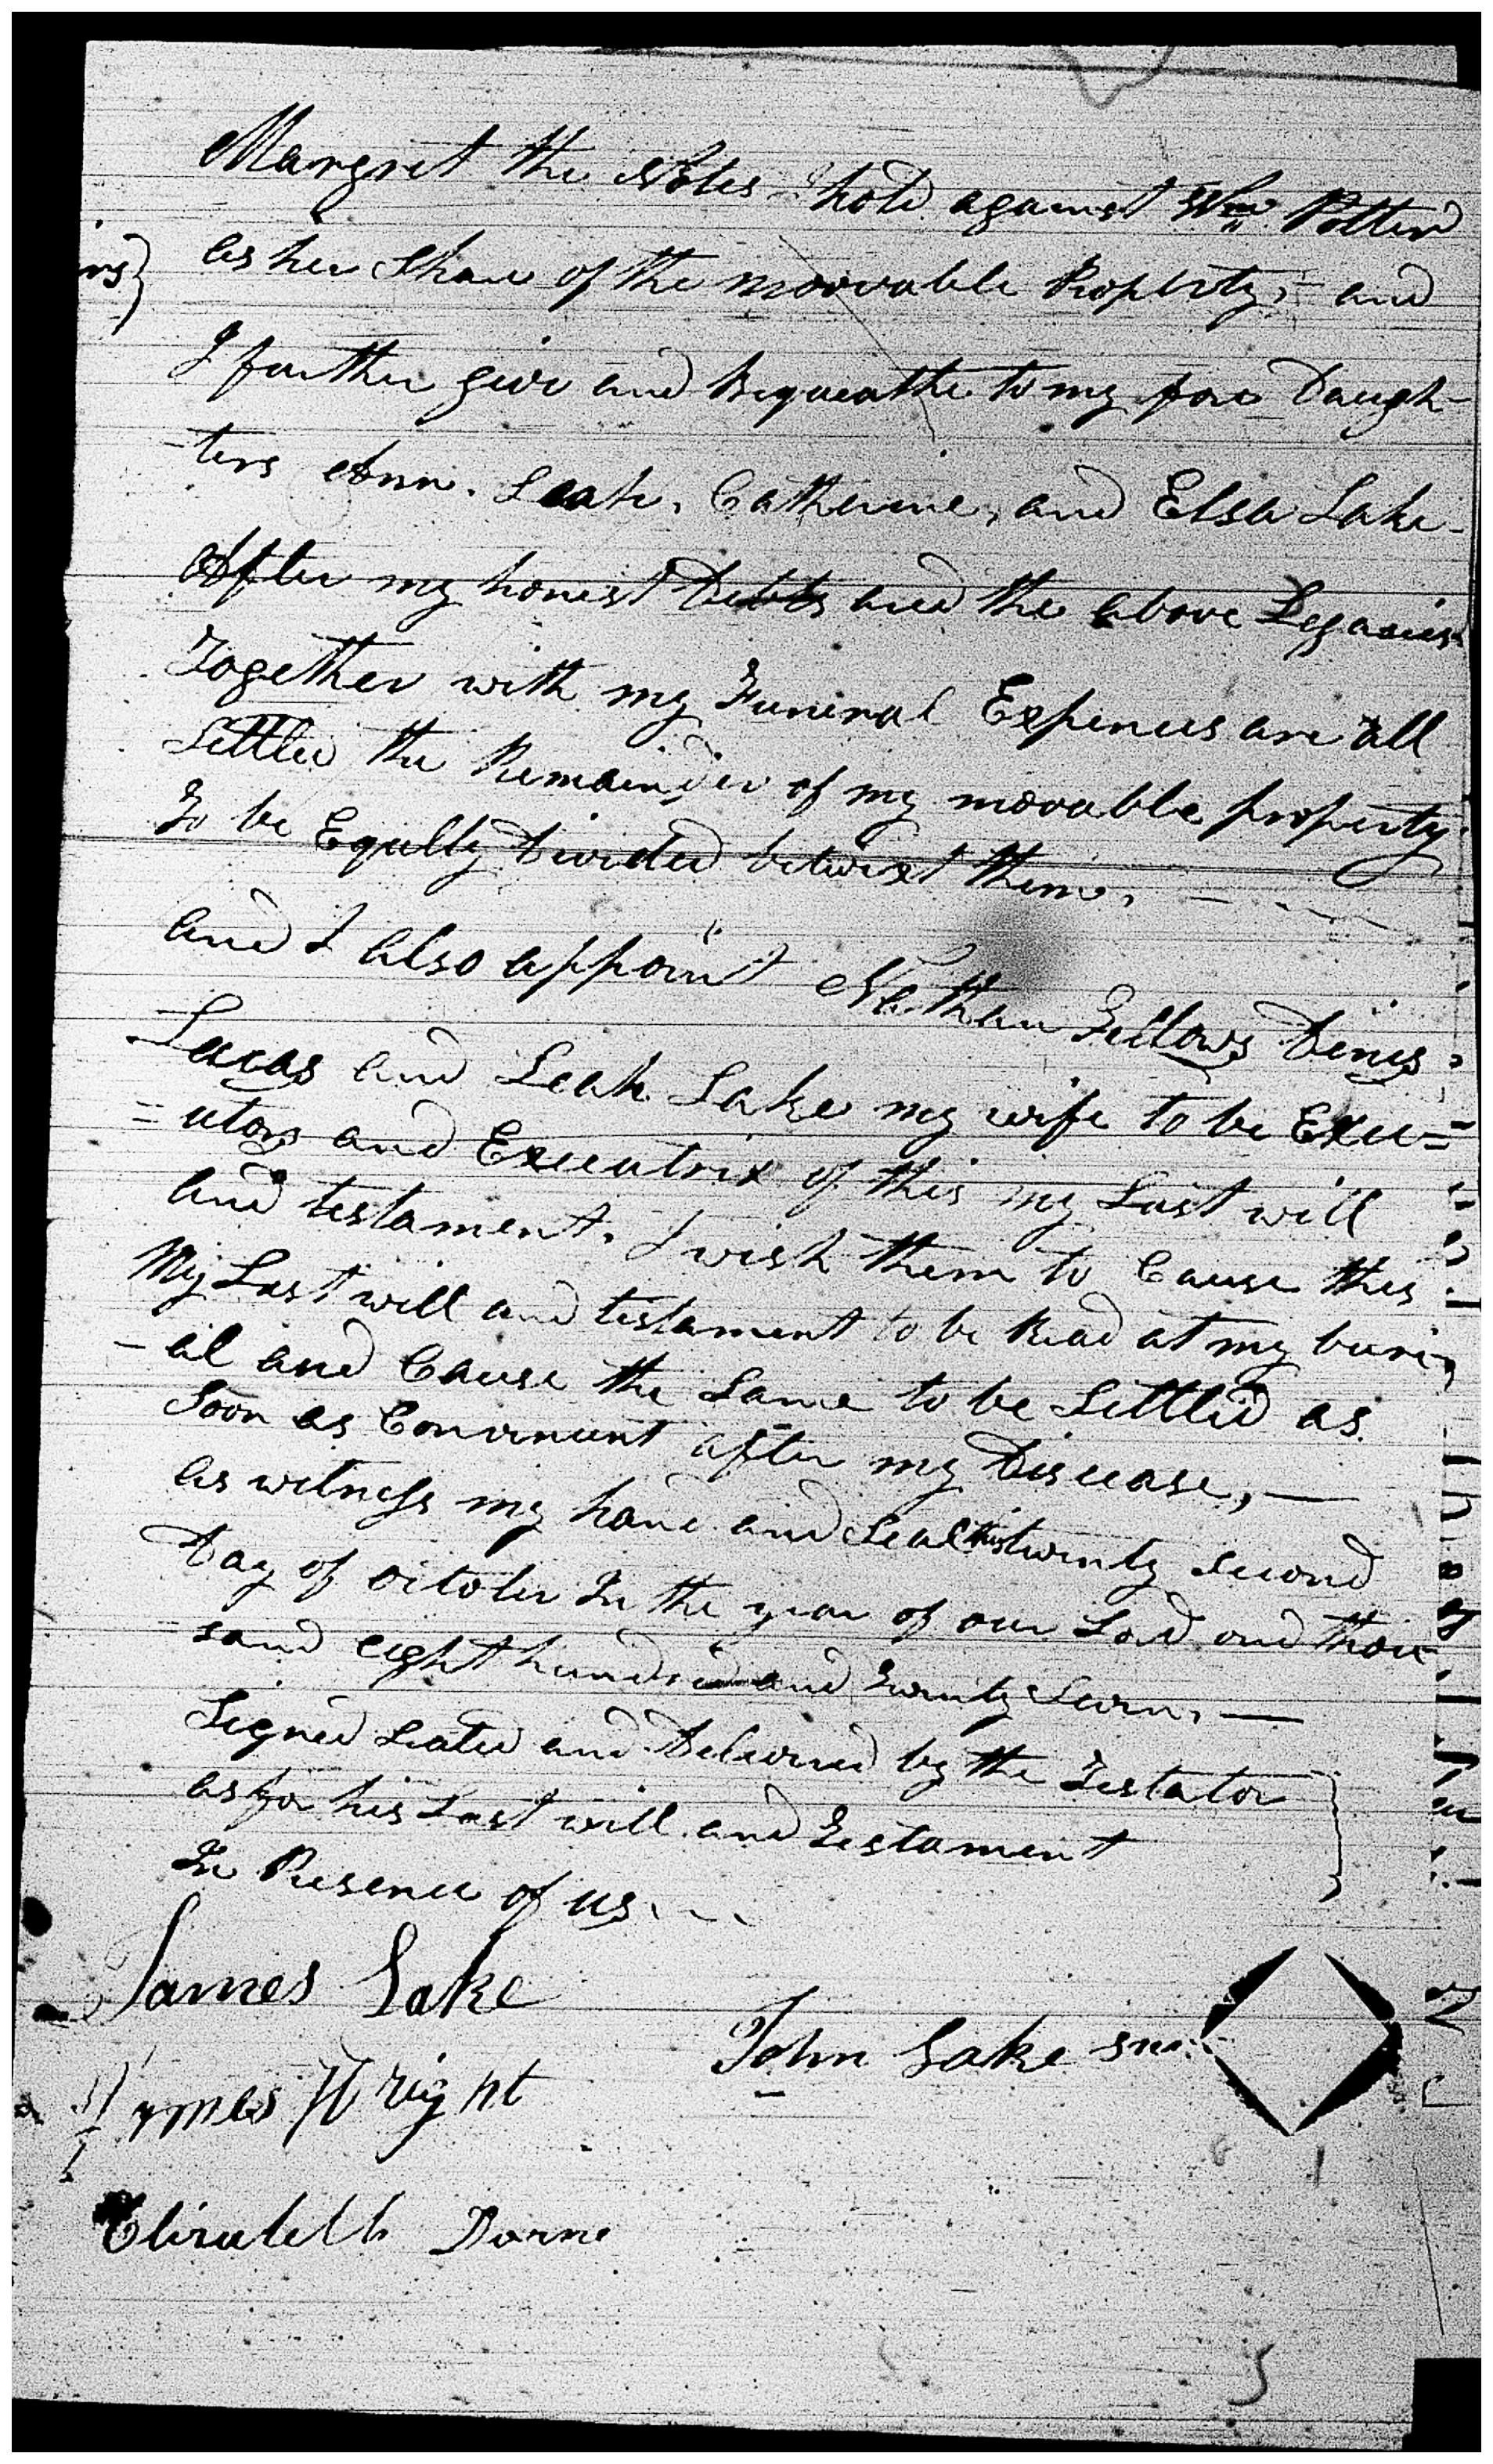 Margret the Notes I hold against Wm Potter
as her Share of the moovable Property, and
rs}
I further give and Bequeathe to my four Daugh-
-ters Ann. Leah, Catherine, and Elsa Lake-
After my honest Debts and the above Legacies
Together with my Funeral Expences are all
Settled the Remainder of my movable property
To be Equilly Divided betwixt them. - - - -
and I also appoint Nathan Fellows Dines
Lucas and Leah Lake my wife to be Exec=
=utors and Executrix of this my Last will
and testament. I wish them to Cause this
My Last will and testament to be Read at my buri-
-al and Cause the Same to be Settled as
Soon as Convenient after my Disease, —
as witness my hand and Seal this twenty second
Day of October In the year of our Lord one thou
sand eight hundred and Twenty Seven. —
Signed Seated and Delivered by the Testator
as for his Last will and Testament
In Presence of us - - -
James Lake
John Lake snr
Hymes Wright
Elizabeth Dorne